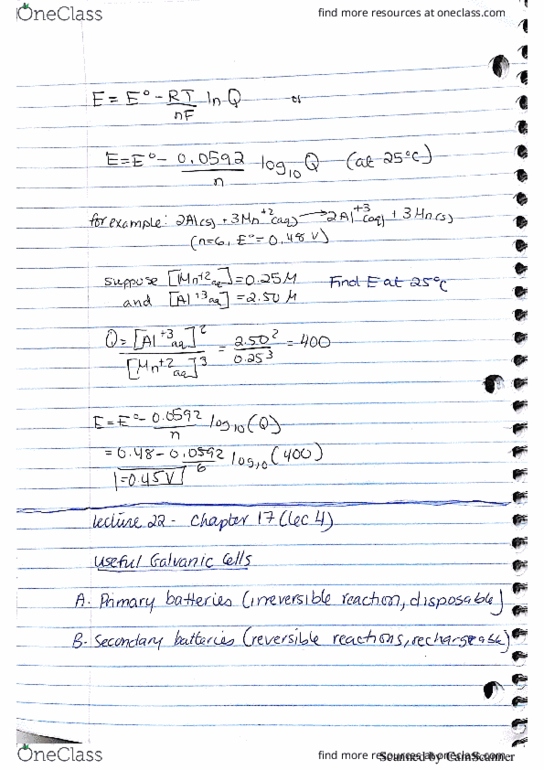 OneClass find more resources at oneclass.com
E = E° - RT/nF ln Q or
E = E° - 0.0592/n log10 Q (at 25°C)
for example: 2Al(s) + 3Mn+2(aq) → 2Al+3(aq) + 3Mn(s)
(n=6, E°= 0.48 V)
suppose [Mn+2 aq] = 0.25M Find E at 25°C
and [Al+3 aq] = 2.50 M
Q = [Al+3 aq]2 / [Mn+2 aq]3 = 2.50² / 0.25³ = 400
E = E° - 0.0592/n log10(Q)
= 0.48 - 0.0592/6 log10(400)
= 0.45V
Lecture 22 - Chapter 17 (Lec 4)
Useful Galvanic Cells
A. Primary batteries (irreversible reaction, disposable)
B. Secondary batteries (reversible reactions, rechargeable)
OneClass find more resources at oneclass.com
Scanned by CamScanner